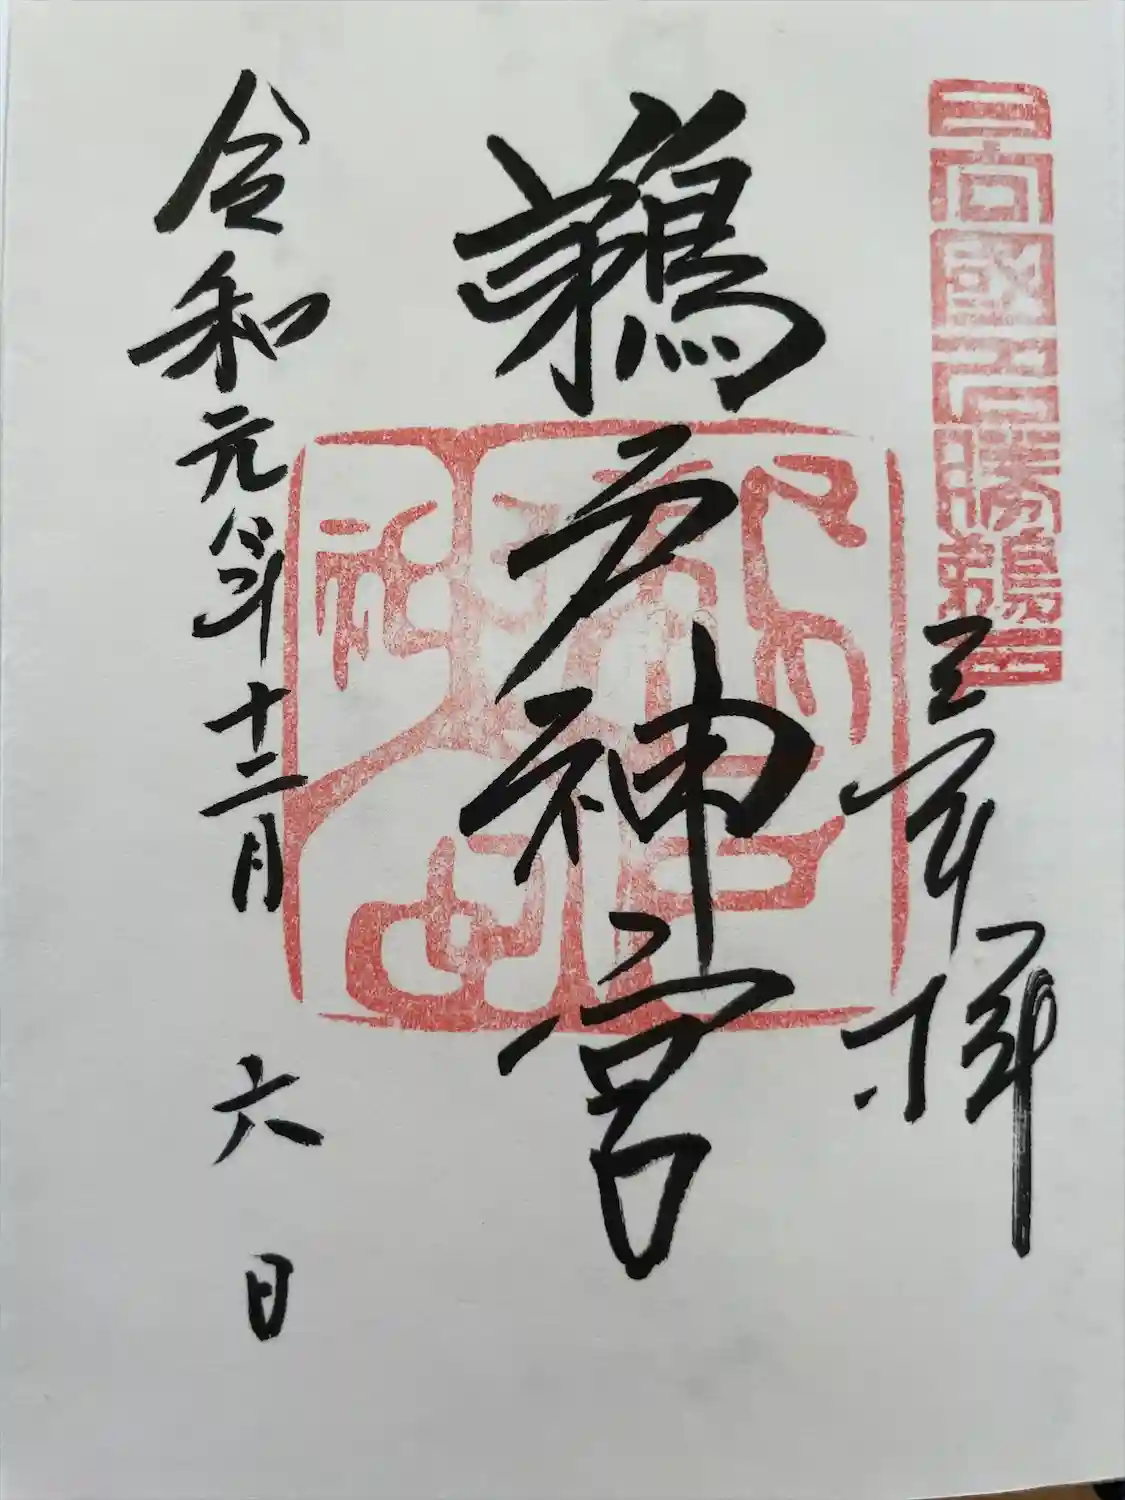 日向國 勝鵜戸
奉拝
鵜戸神宮
令和元年十二月六日